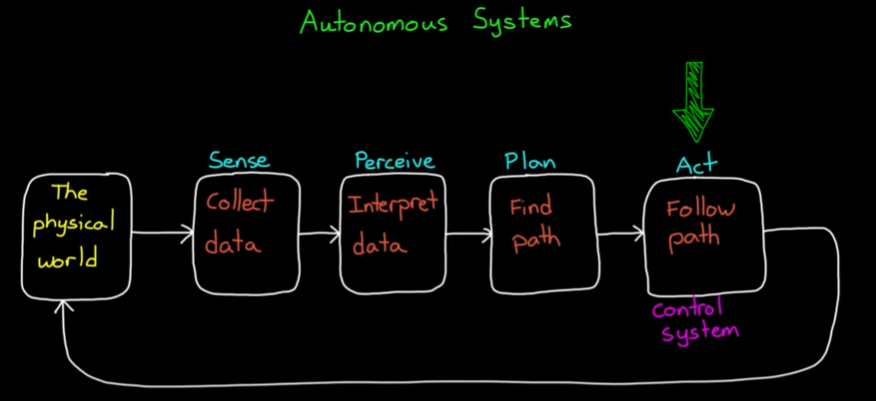 Autonomous Systems
The
physical
world
Sense
Collect
data
Perceive
Interpret
data
Plan
Find
path
Act
Follow
path
Control
system